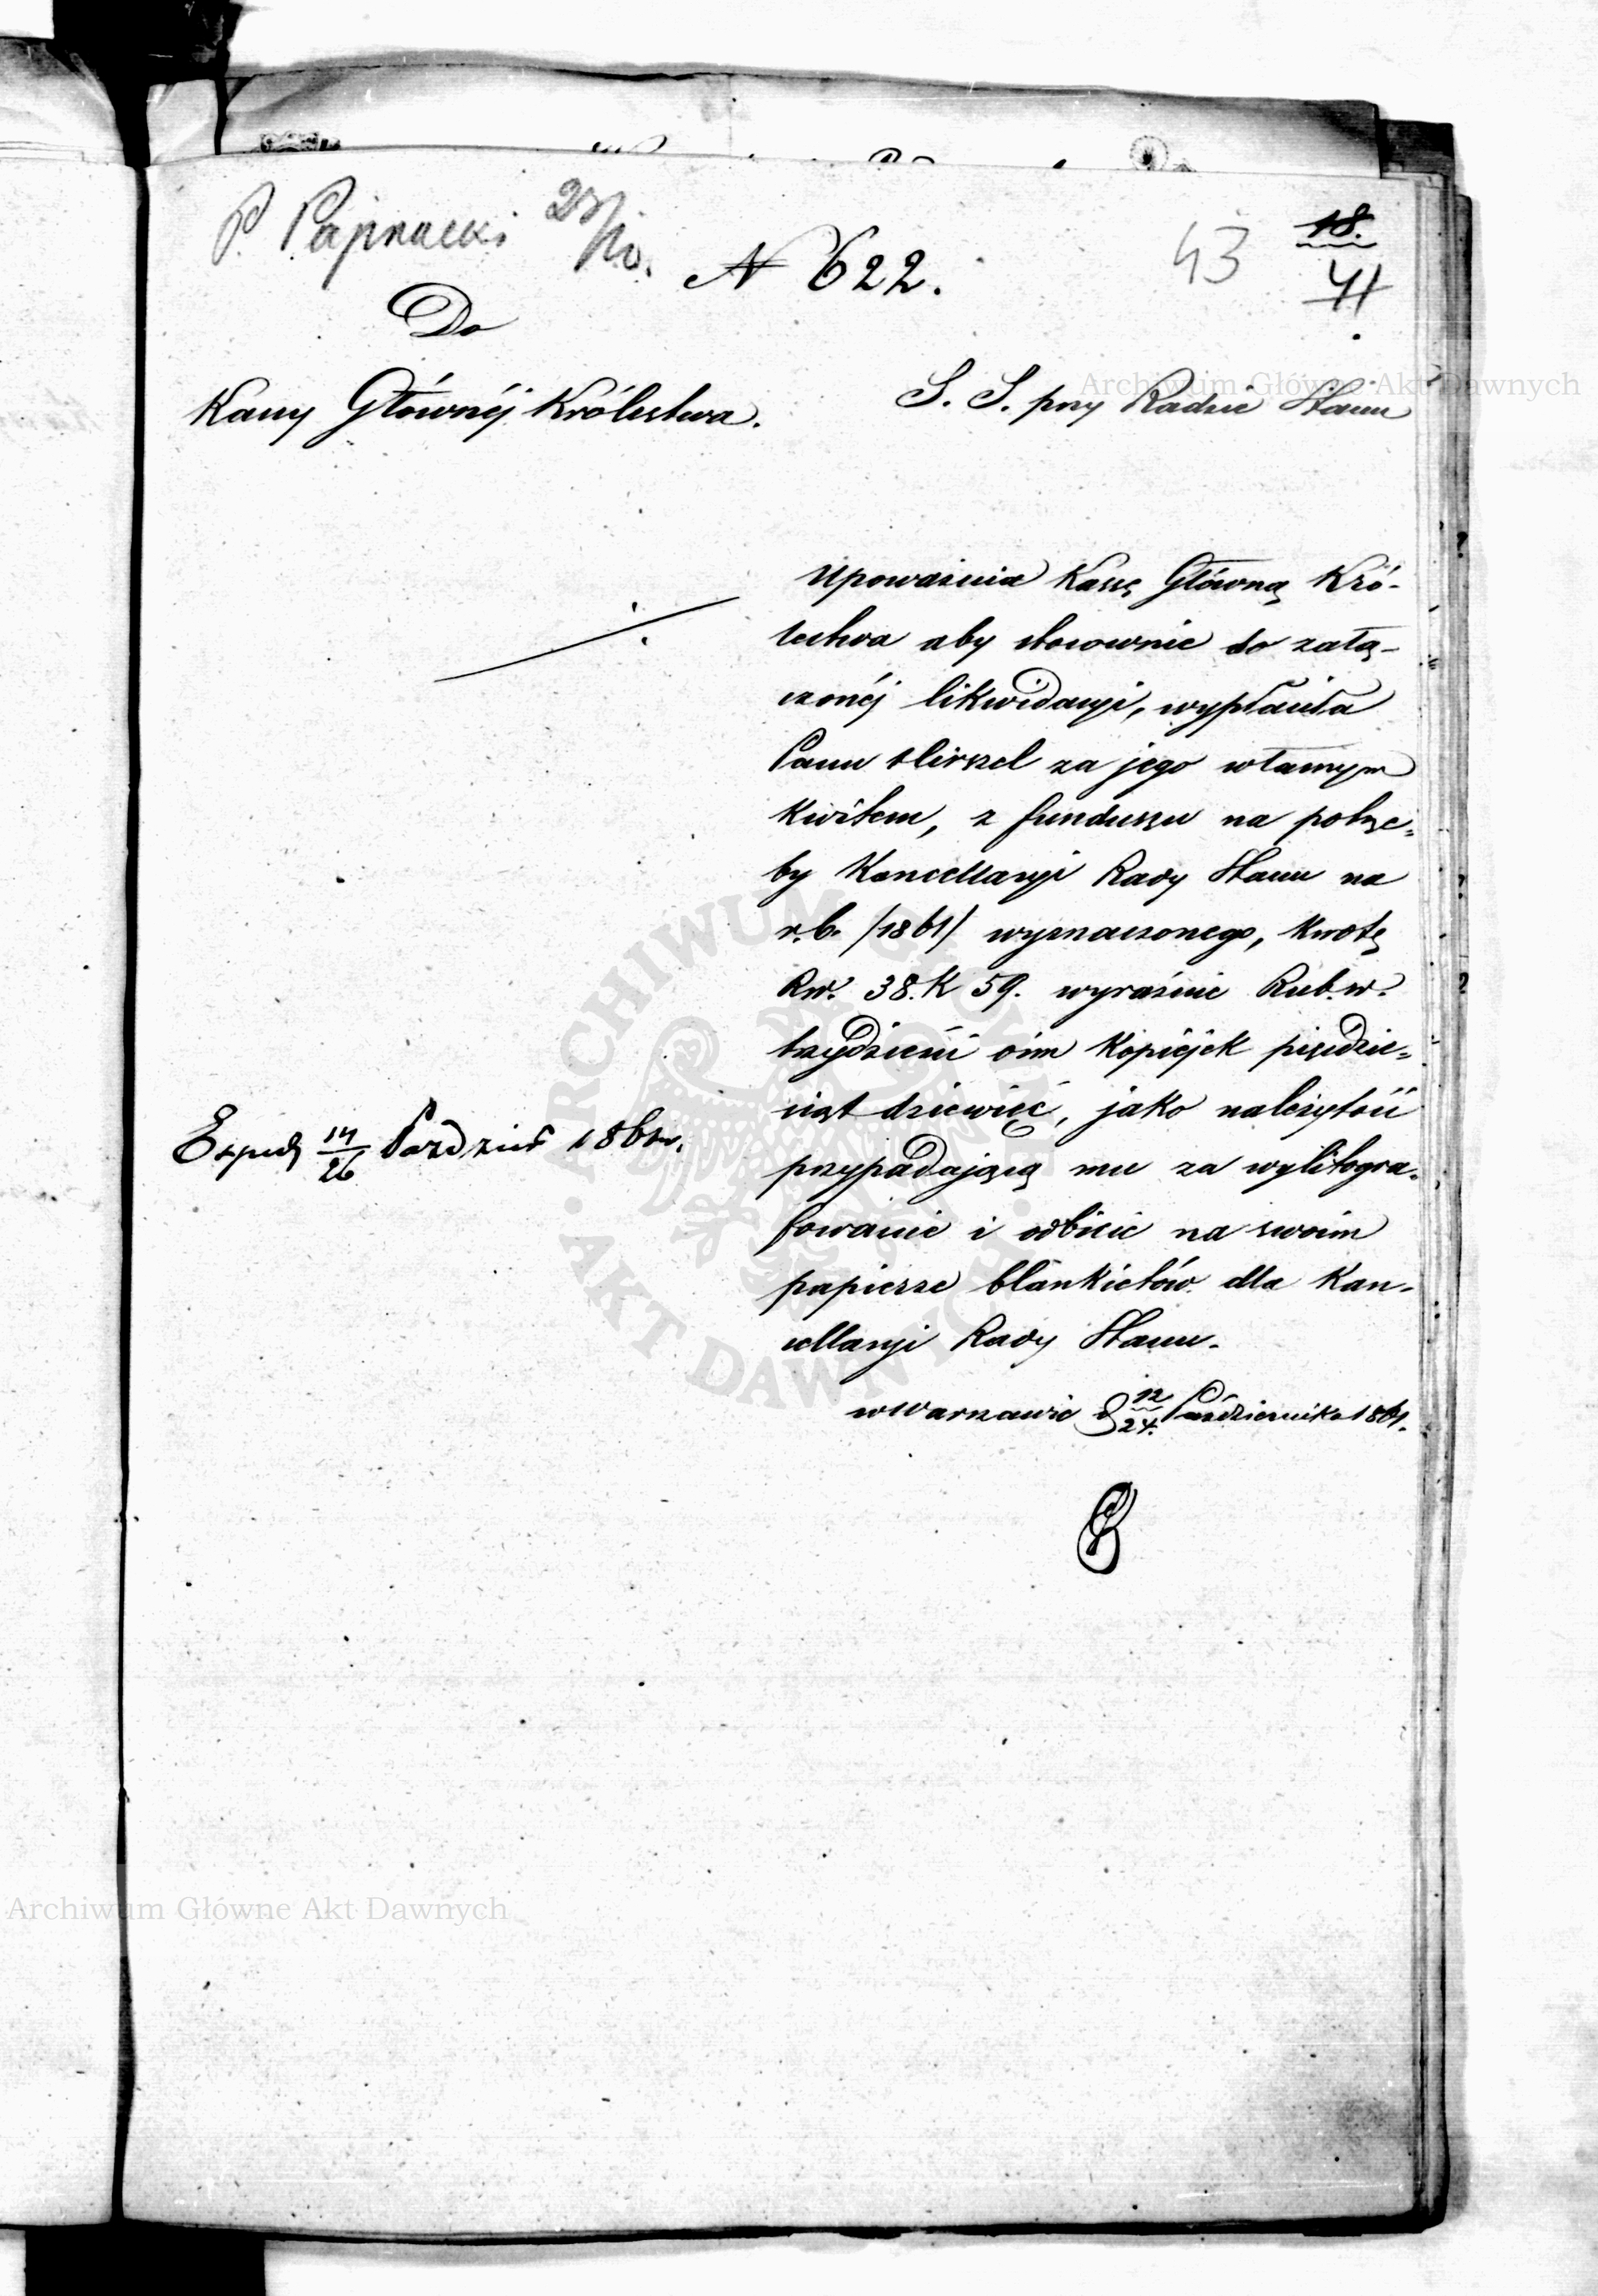 P. Pajnacki 25/10.
N 622.
43
18.
41
Do
Kassy Głównéj Królestwa.
S. S. przy Radzie Stanu
Upoważnia Kassę Główną Kró-
lestwa aby stosownie do załą-
czonéj likwidacyi, wypłaciła
Panu Hirszel za jego własnym
kwitem, z funduszu na potrze-
by Kancellaryi Rady Stanu na
r.b. /1861/ wyznaczonego, kwotę
Rsr. 38. K 59. wyraźnie Rub. sr.
trzydzieści ośm kopiéjek pięćdzie-
siąt dziewięć, jako należytość
przypadającą mu za wylitogra-
fowanie i odbicie na swoim
papierze blankietów dla Kan-
cellaryi Rady Stanu.
w Warszawie d 12/24. Października 1861.
Exped 14/26 Paździer 1861 r.
Archiwum Główne Akt Dawnych
ARCHIWUM GŁÓWNE AKT DAWNYCH
Archiwum Główne Akt Dawnych